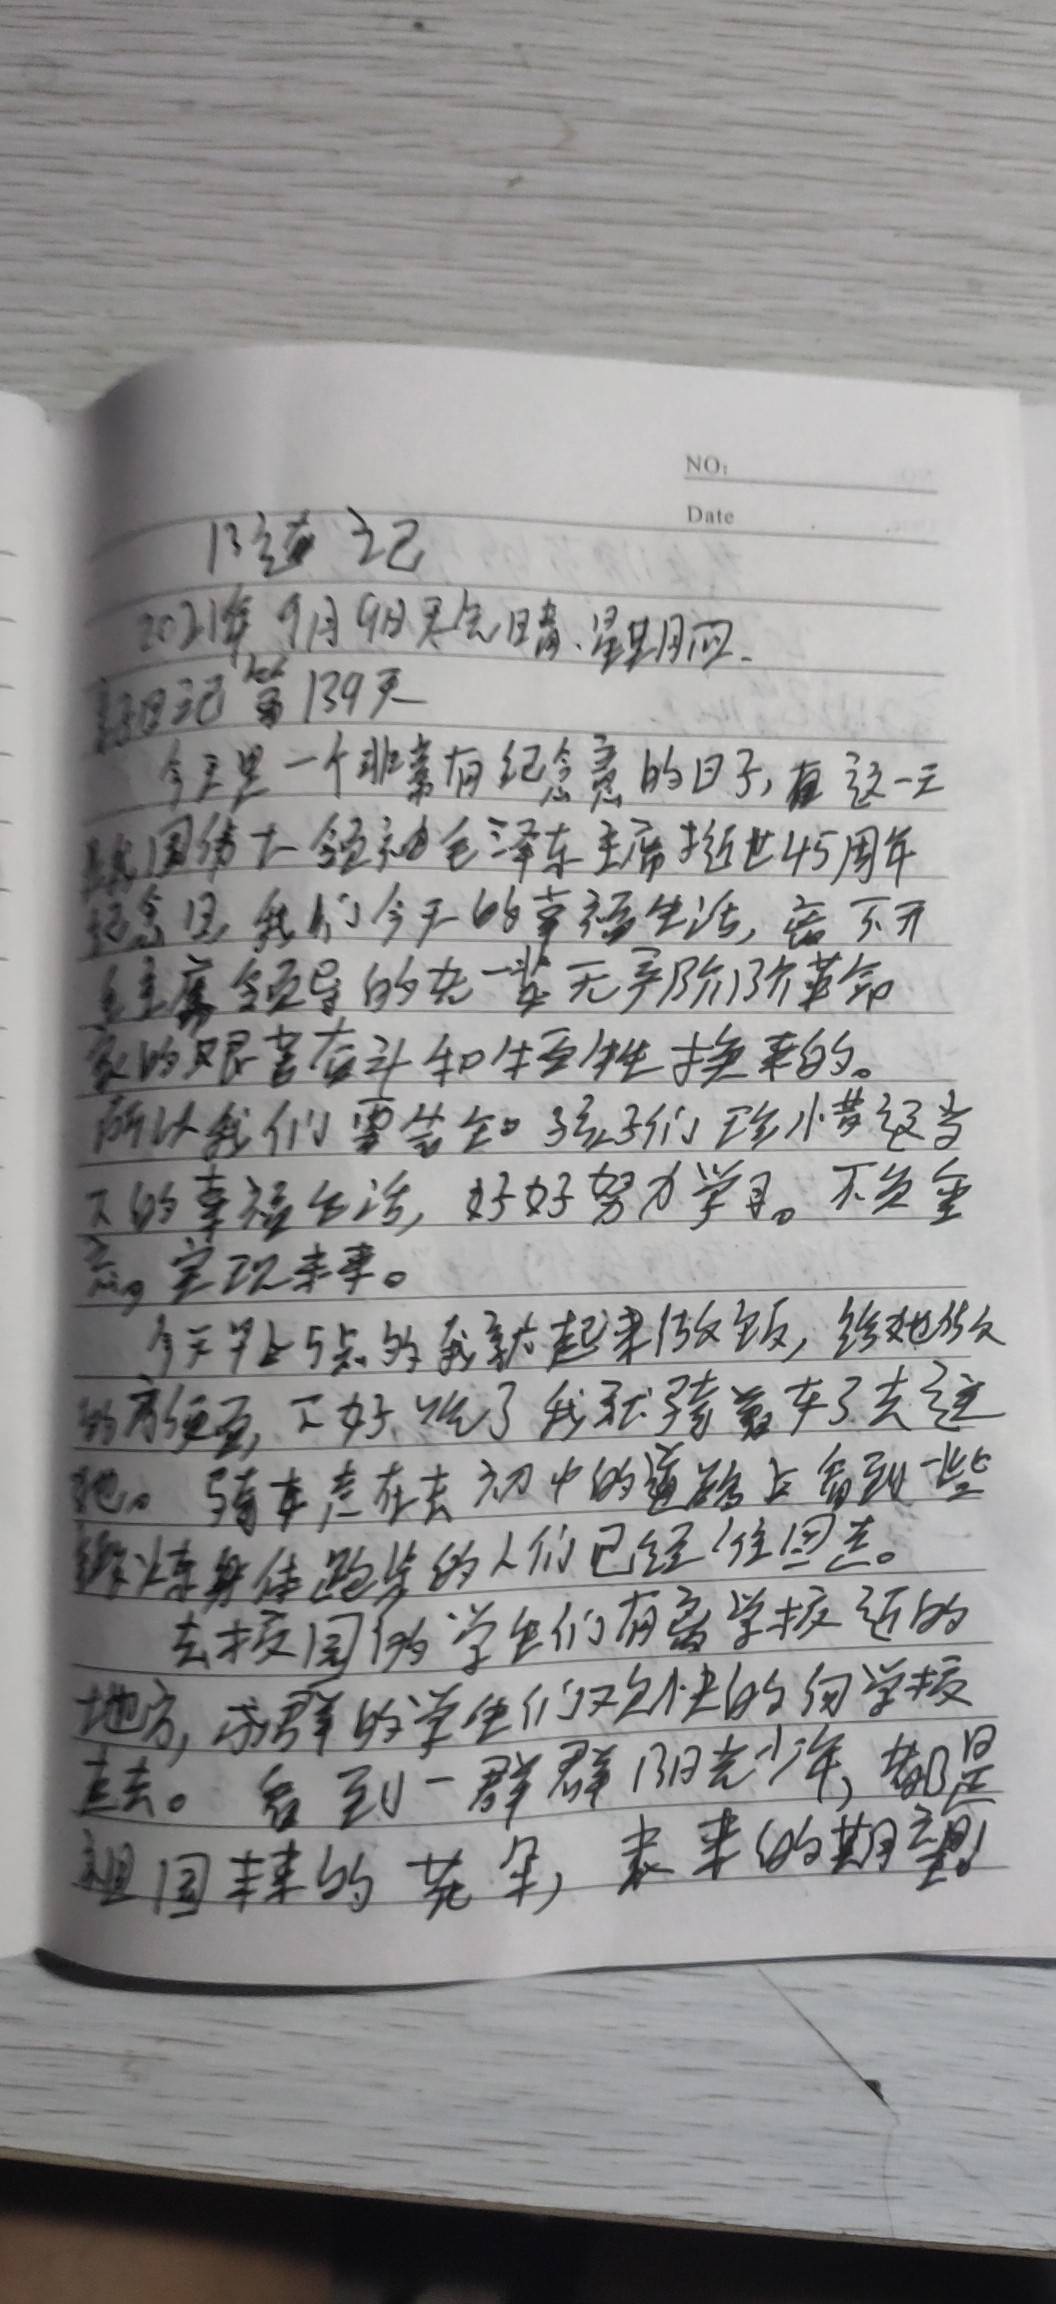 NO:
Date
记
2021年9月9日天气晴、星期四.
亲子日记第139天
今天是一个非常有纪念意的日子,在这一天
是我国伟大领袖毛泽东主席逝世45周年
纪念日,我们今天的幸福生活,离不开
毛主席领导的老一辈无产阶阶革命
家的艰苦奋斗和牺牲换来的。
所以我们要告知孩子们珍惜这当
下的幸福生活,好好努力学习。不负
实现未来。
今天早上5点的我就起来做饭,给她做
的方便面,下好吃了我就骑着车子去送
她。骑车走在去初中的道路上看到一些
锻炼身体跑步的人们已经往回走。
去校园的学生们有离学校近的
地方,成群的学生们欢快的向学校
走去。看到一群群阳光少年,都是
祖国未来的花朵,未来的期望!